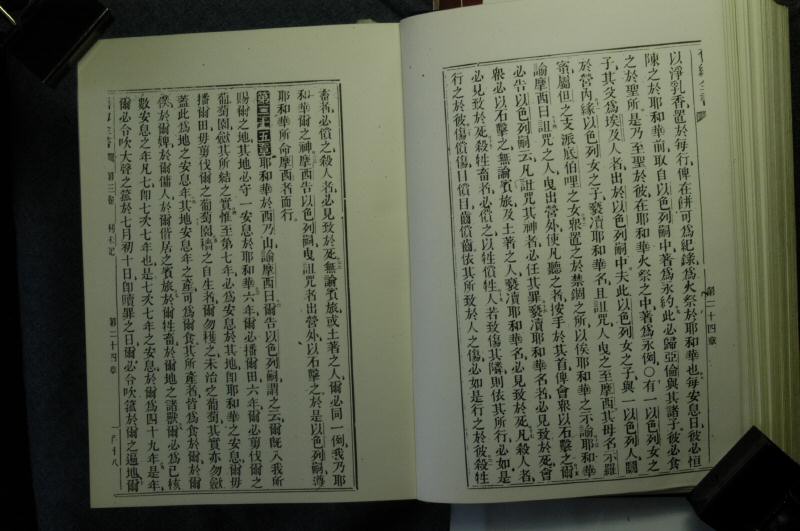 舊約全書
第二十四章
以淨乳香置於每行俾在餅可爲紀錄爲火祭於耶和華也每安息日彼必恒
陳之於耶和華前取自以色列嗣中著爲永約此必歸亞倫與其諸子彼必食
之於聖所是乃至聖於彼在耶和華火祭之中著爲永例○有一以色列女之
子其父爲埃及人者出於以色列嗣中夫此以色列女之子與一以色列人鬬
於營內緣以色列女之子褻瀆耶和華名且詛咒人曳之至摩西其母名示羅
密屬但之支派底伯哩之女衆置之於禁錮之所以俟耶和華之示諭耶和華
諭摩西曰詛咒之人曳出營外使凡聽之者按手於其首俾會衆以石擊之爾
必告以色列嗣云凡詛咒其神者必任其罪褻瀆耶和華名者必見致於死會
衆必以石擊之無論賓旅及土著之人褻瀆耶和華名必見致於死凡殺人者
必見致於死殺牲畜者必償之以牲償牲人若致傷其隣則依其所行必如是
行之於彼傷償傷目償目齒償齒依其所致於人之傷必如是行之於彼殺牲
畜者必償之殺人者必見致於死無論賓旅或土著之人爾必同一例我乃耶
和華爾之神摩西告以色列嗣曳詛咒者出營外以石擊之於是以色列嗣遵
耶和華所命摩西者而行
第二十五章耶和華於西乃山諭摩西曰爾告以色列嗣謂之云爾旣入我所
賜爾之地其地必守一安息於耶和華六年爾必播爾田六年爾必剪伐爾之
葡萄園斂其所結之實惟至第七年必爲安息於其地卽耶和華之安息爾毋
播爾田毋剪伐爾之葡萄園穡之自生者爾勿穫之未治之葡萄其實亦勿斂
蓋此爲地之安息年其地安息年之產可爲爾食其所產者皆爲食於爾於爾
僕於爾婢於爾傭人於爾偕居之賓旅於爾牲畜於爾地之諸獸爾必爲已核
數安息之年凡七卽七次七年也是七次七年之安息於爾爲四十九年是年
爾必令吹大聲之箛於七月初十日卽贖罪之日爾必令吹箛於爾之遍地爾
第三卷
利未記
第二十四章